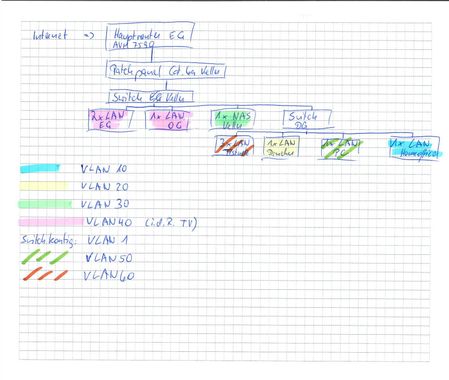 Internet => Hauptrouter EG
AVM 7530
Patchpanel Cat. 6a Keller
Switch EG Keller
2x LAN EG
1x LAN OG
1x NAS Keller
Switch DG
2x LAN
1x LAN Drucker
1x LAN PC
1x LAN Homeoffice
VLAN 10
VLAN 20
VLAN 30
VLAN 40 (i.d.R. TV)
Switchkonfig: VLAN 1
VLAN 50
VLAN 60